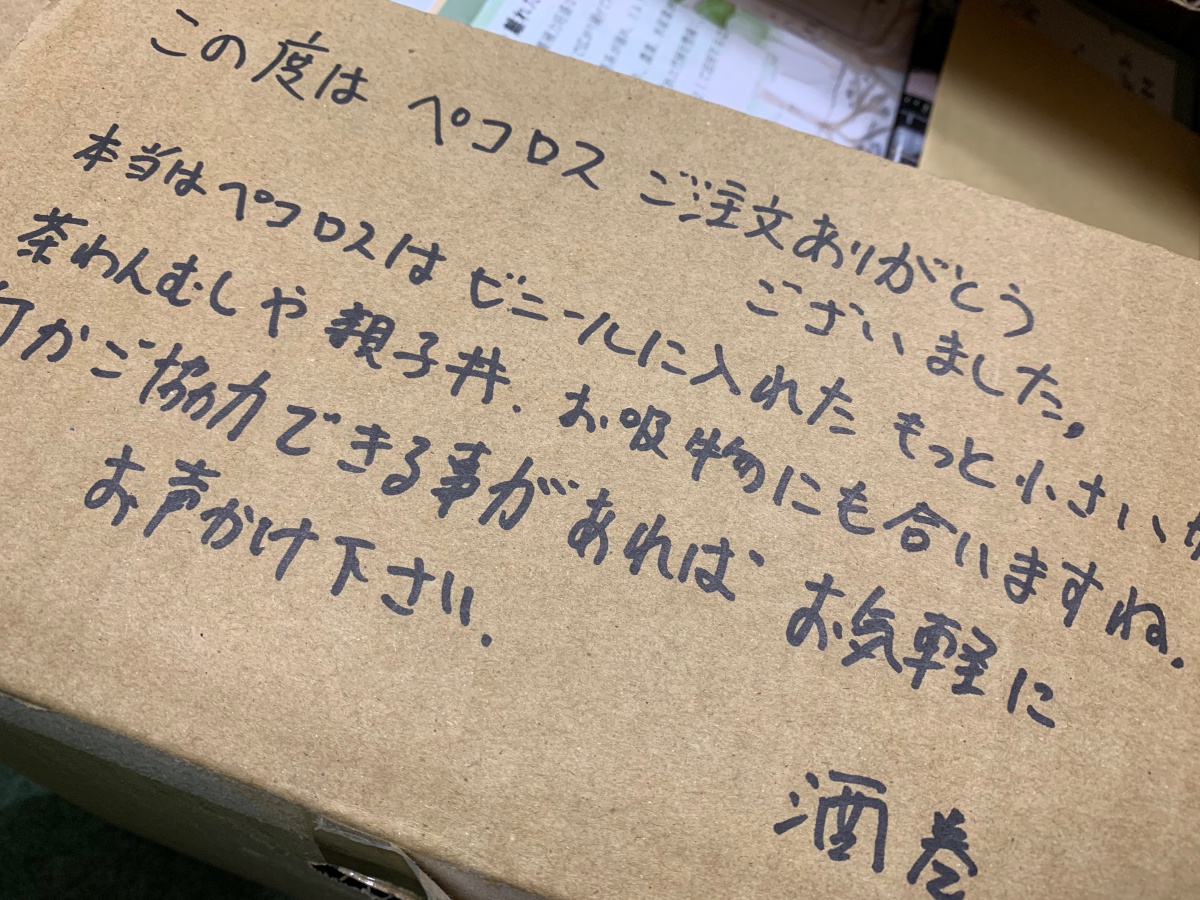 この度は ペコロス ご注文ありがとう
ございました,
本当はペコロスは ビニールに入れた もっと小さい
茶わんむしや 親子丼. お吸物にも合いますね.
何かご協力できる事があれば お気軽に
お声かけ下さい.
酒巻